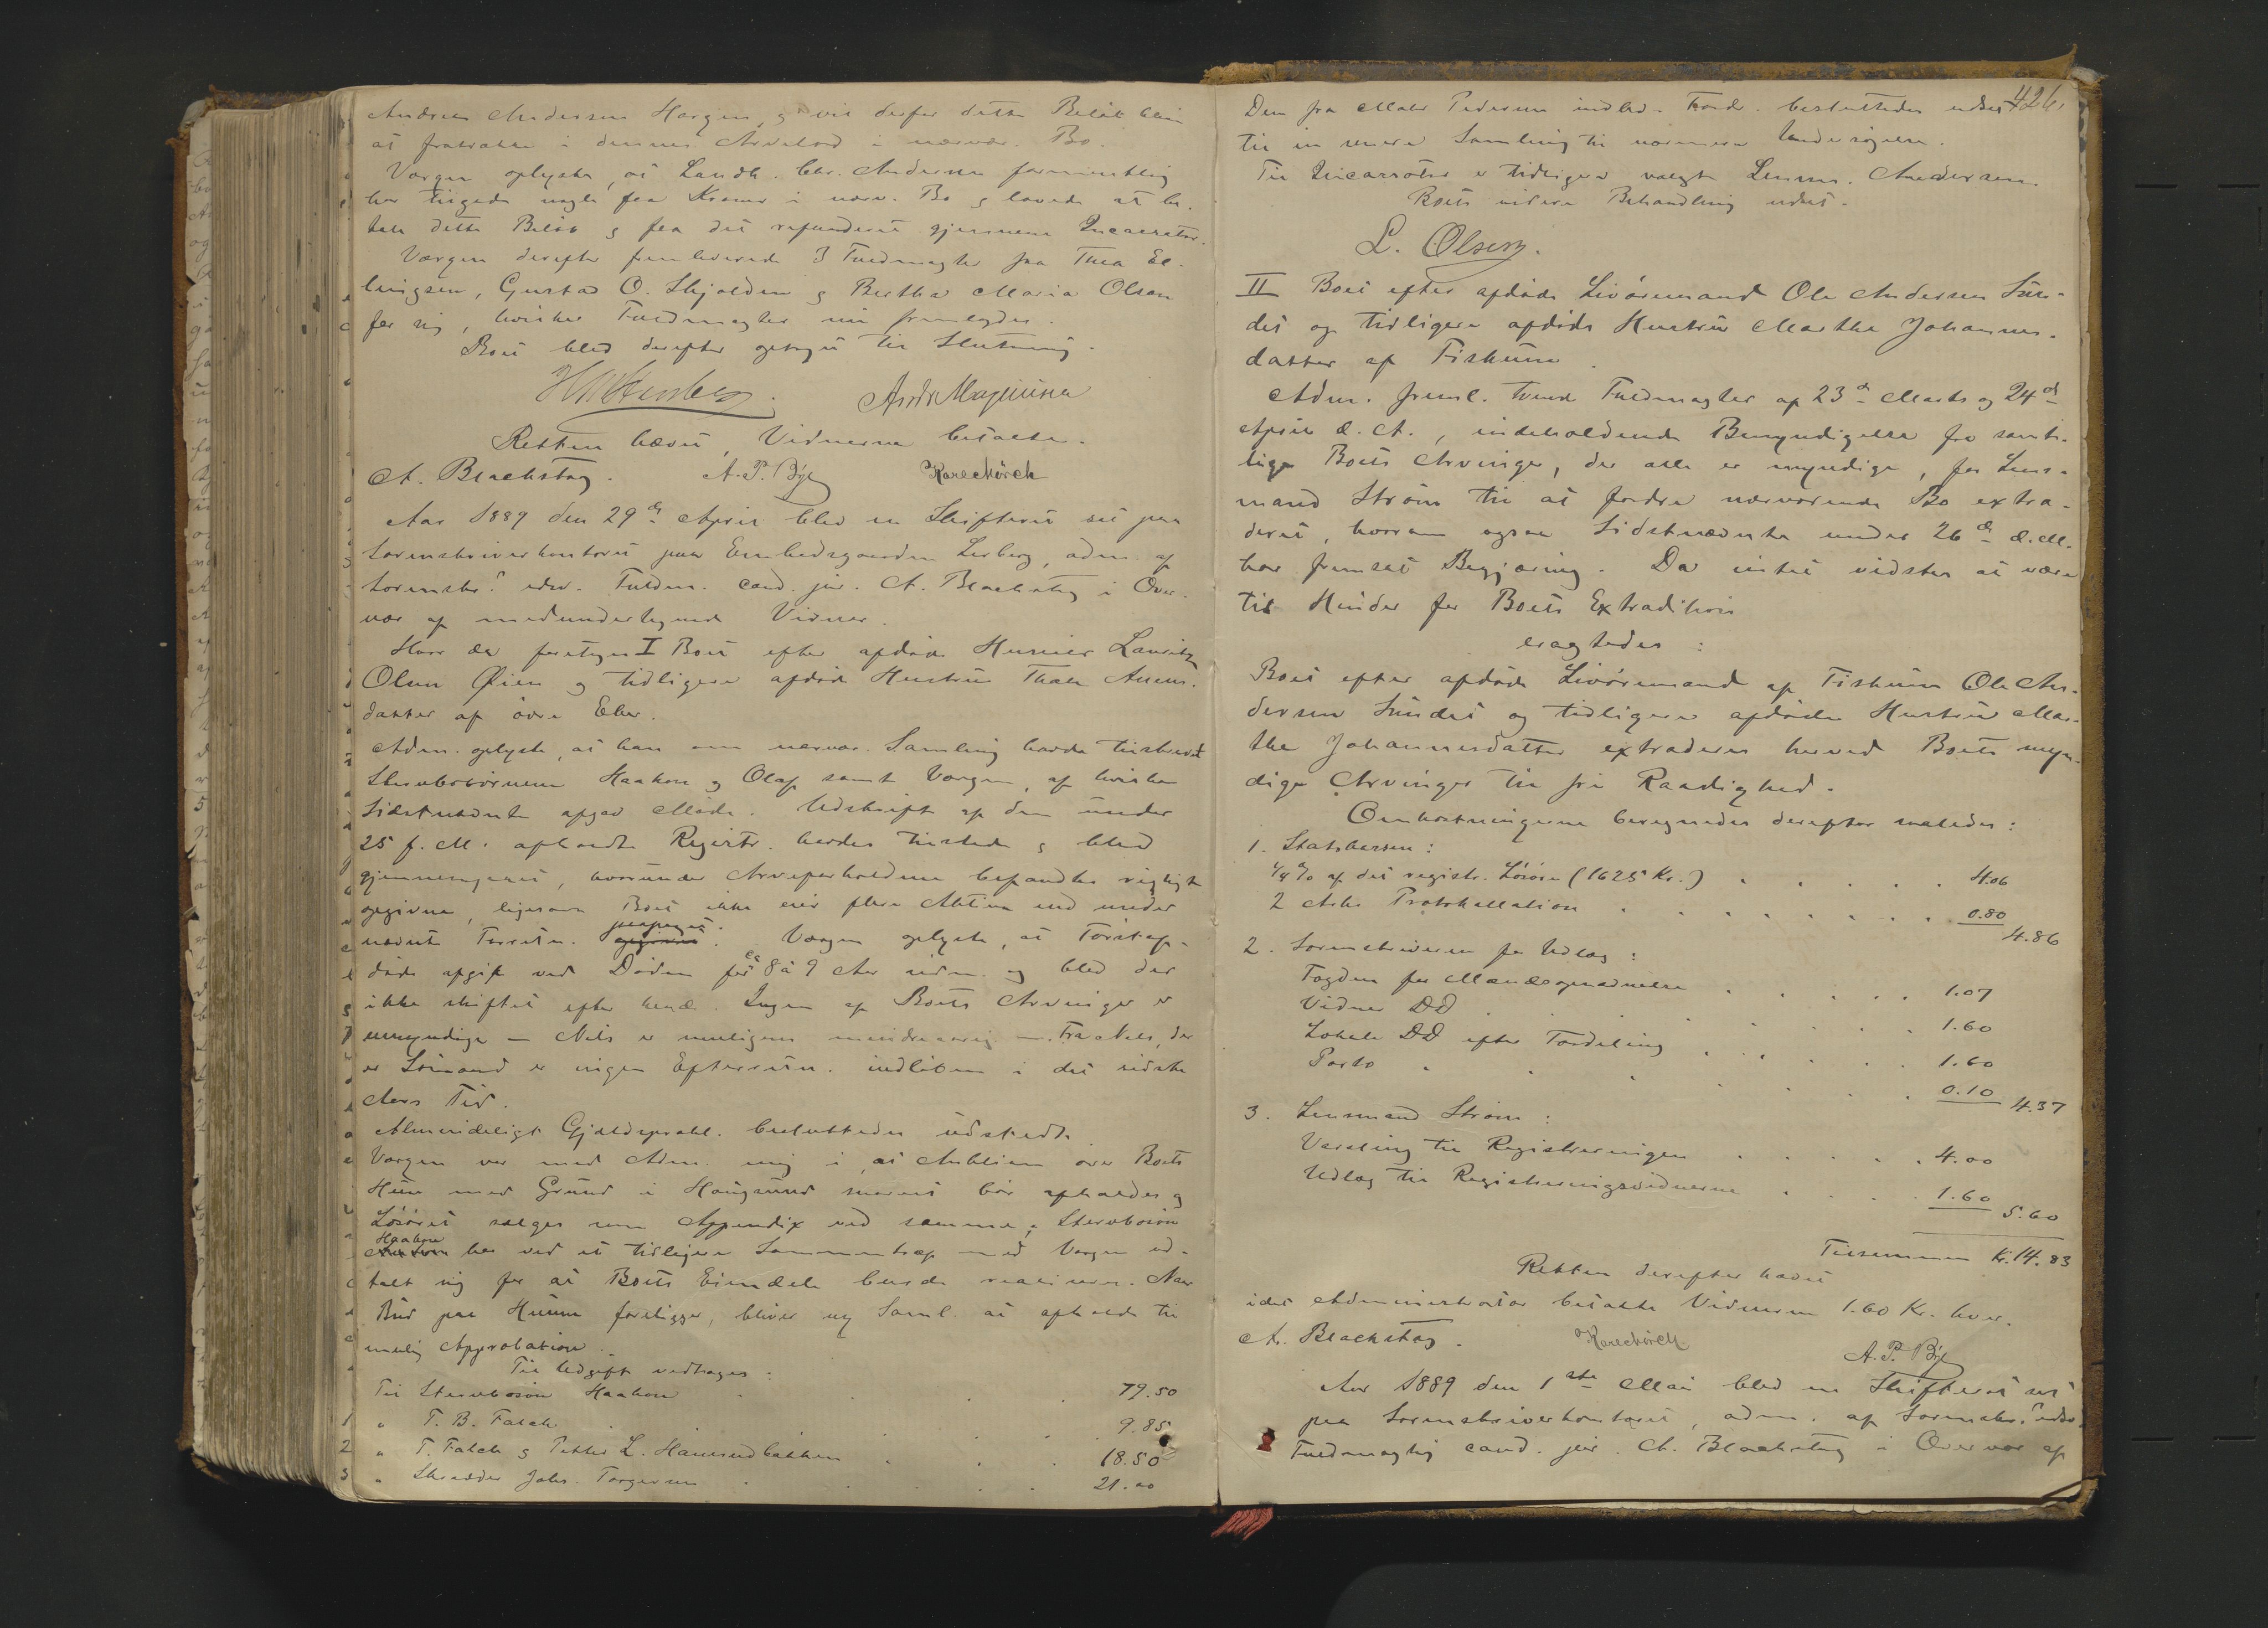 Andreas Andersen Horgen, og vil derfor dette Beløb blive
at fratrække i dennes Arvelod i nærvær. Bo.
Værgen oplyste, at Landh. Andersen formentlig
har tilgode nogle faa Kroner i nærv. Bo og lovede at be-
tale dette Beløb og faa det refunderet gjennem Incassator.
Værgen derefter fremleverede 3 Fuldmagter fra Thea El-
lingsen, Gustav O. Skjolden og Bertha Maria Olsen
for sig, hvilke Fuldmagter nu fremlagdes.
Boet blev derefter optaget til Slutning.
Retten hævet, Vidnerne betalte.
A. Blackstag. A. P. Bye
Aar 1889 den 29de April blev en Skifteret sat paa
Sorenskriverkontoret paa Embedsgaarden Lerberg, adm. af
Sorenskr.s edsv. Fuldm. cand. jur. A. Blackstag i Over-
vær af medundertegnede Vidner.
Hvor da foretoges I Boet efter afdøde Husmand Lauritz
Olsen Øien og tidligere afdøde Hustru Thale Anders-
datter af øvre Eker.
Adm. oplyste, at han om nærvær. Samling havde tilskrevet
Stervbobørnene Haakon og Olaf samt Værgen, af hvilke
Sidstnævnte afgav Møde. Udskrift af den under
25 f. M. afholdte Registr. havdes tilstede og blev
gjennemgaaet, hvorunder Arveforholdene befandtes rigtigt
opgivne, ligesom Boet ikke eier flere Aktiva end under
nævnte Forretn. paapeget. Værgen oplyste, at Førstaf-
døde afgik ved Døden for ca 8 à 9 Aar siden og blev der
ikke skiftet efter hende. Ingen af Boets Arvinger er
umyndige — Nils er muligens mindreaarig —. Fra Nils, der
er Sømand er ingen Efterretn. indløben i det sidste
Aars Tid.
Almindeligt Gjældsprokl. besluttedes udstedt.
Værgen var med Adm. enig i, at Auktion over Boets
Huse med Grund i Hougsund snarest bør afholdes og
Løsøret sælges som Appendix ved samme; Stervbosøn
Haakon har ved et tidligere Sammentræf med Værgen ud-
talt sig for at Boets Eiendele burde realiseres. Naar
Bud paa Husene foreligger, bliver ny Saml. at afholde til
mulig Approbation.
Til Udgift vedtages:
Til Stervbosøn Haakon 79.50
1 " T. B. Falch 9.85
2 " T. Falch og Petter L. Hamsundbakken 18.50
3 " Skrædder Johs. Torgersen 21.00
426.
Den fra Maler Pedersen indlev. Fordr. besluttedes udsat
til en senere Samling til nærmere Undersøgelse.
Til Incassator er tidligere valgt Lensm. Andersen.
Boets videre Behandling udsat.
L. Olsen.
II Boet efter afdøde Livøremand Ole Andersen Sun-
det og tidligere afdøde Hustru Marthe Johannes-
datter af Fiskum.
Adm. freml. tvende Fuldmagter af 23de Marts og 24de
April d. A., indeholdende Bemyndigelse fra samt-
lige Boets Arvinger, der alle er myndige, for Lens-
mand Strøm til at fordre nærværende Bo extra-
deret, hvorom ogsaa Sidstnævnte under 26de d. M.
har fremsat Begjæring. Da intet vidstes at være
til Hinder for Boets Extradition
eragtedes:
Boet efter afdøde Livøremand af Fiskum Ole An-
dersen Sundet og tidligere afdøde Hustru Mar-
the Johannesdatter extraderes herved Boets myn-
dige Arvinger til fri Raadighed.
Omkostningerne beregnedes derefter saaledes:
1. Statskassen:
1/4 % af det registr. Løsøre (1625 Kr.) 4.06
2 Arks Protokollation 0.80
4.86
2. Sorenskriveren for Udlæg:
Fogden for Mandsopnævnelse 1.07
Vidner DD 1.60
Lokale DD efter Fordeling 1.60
Porto 0.10
4.37
3. Lensmand Strøm:
Varsling til Registreringen 4.00
Udlæg til Registreringsvidnerne 1.60
5.60
Tilsammen Kr. 14.83
Retten derefter hævet
idet Administrator betalte Vidnerne 1.60 Kr. hver.
A. Blackstag. A. P. Bye
Aar 1889 den 1ste Mai blev en Skifteret sat
paa Sorenskriverkontoret, adm. af Sorenskr.s edsv.
Fuldmægtig cand. jur. A. Blackstag i Overvær af